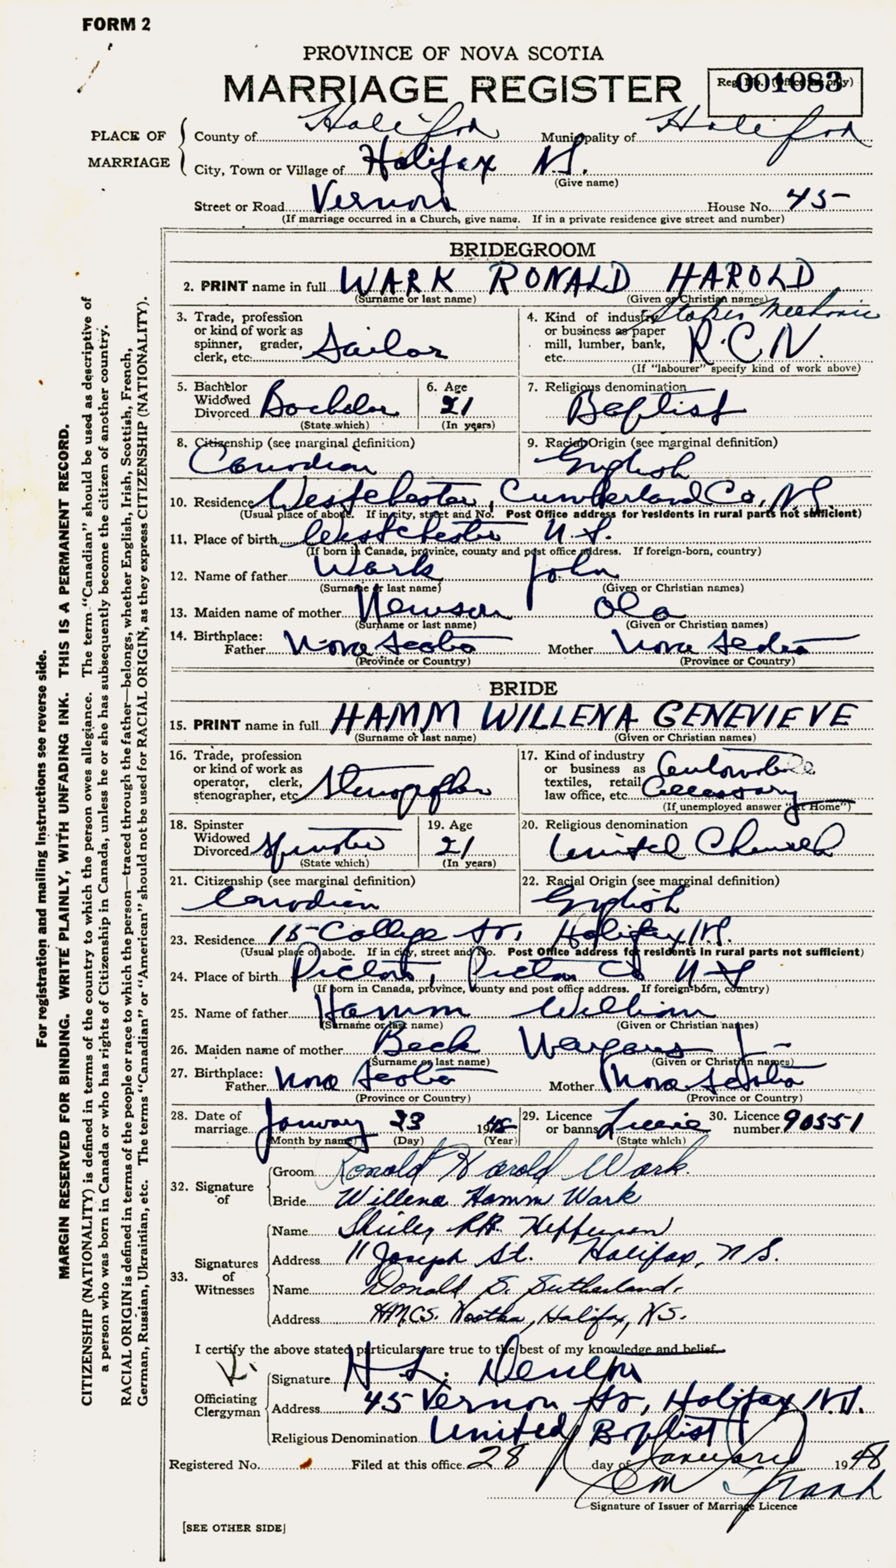 FORM 2
PROVINCE OF NOVA SCOTIA
MARRIAGE REGISTER
001083
PLACE OF MARRIAGE
County of Halifax Municipality of Halifax
City, Town or Village of Halifax N.S.
(Give name)
Street or Road Vernon House No. 45
(If marriage occurred in a Church, give name. If in a private residence give street and number)
BRIDEGROOM
2. PRINT name in full WARK RONALD HAROLD
(Surname or last name) (Given or Christian names)
3. Trade, profession or kind of work as spinner, grader, clerk, etc. Sailor
4. Kind of industry or business as paper mill, lumber, bank, etc. Stoker Mechanic R.C.N.
(If "labourer" specify kind of work above)
5. Bachelor Widowed Divorced Bachelor
(State which)
6. Age 21
(In years)
7. Religious denomination Baptist
8. Citizenship (see marginal definition) Canadian
9. Racial Origin (see marginal definition) English
10. Residence Westchester, Cumberland Co, NS
(Usual place of abode. If in city, street and No. Post Office address for residents in rural parts not sufficient)
11. Place of birth Westchester N.S.
(If born in Canada, province, county and post office address. If foreign-born, country)
12. Name of father Wark John
(Surname or last name) (Given or Christian names)
13. Maiden name of mother Newson Ola
(Surname or last name) (Given or Christian names)
14. Birthplace: Father Nova Scotia Mother Nova Scotia
(Province or Country) (Province or Country)
BRIDE
15. PRINT name in full HAMM WILLENA GENEVIEVE
(Surname or last name) (Given or Christian names)
16. Trade, profession or kind of work as operator, clerk, stenographer, etc. Stenographer
17. Kind of industry or business as textiles, retail law office, etc. Accessory
(If unemployed answer "At Home")
18. Spinster Widowed Divorced Spinster
(State which)
19. Age 21
(In years)
20. Religious denomination United Church
21. Citizenship (see marginal definition) Canadian
22. Racial Origin (see marginal definition) English
23. Residence 15 College St, Halifax, N.S.
(Usual place of abode. If in city, street and No. Post Office address for residents in rural parts not sufficient)
24. Place of birth Pictou, Pictou Co NS
(If born in Canada, province, county and post office address. If foreign-born, country)
25. Name of father Hamm William
(Surname or last name) (Given or Christian names)
26. Maiden name of mother Beck
(Surname or last name) (Given or Christian names)
27. Birthplace: Father Nova Scotia Mother Nova Scotia
(Province or Country) (Province or Country)
28. Date of marriage January 23 1948
(Month by name) (Day) (Year)
29. Licence or banns License
(State which)
30. Licence number 90551
32. Signature of
Groom Ronald Harold Wark
Bride Willena Hamm Wark
33. Signatures of Witnesses
Name Shirley Heffernan
Address 11 Joseph St. Halifax, N.S.
Name Donald S. Sutherland.
Address HMCS. Nootka, Halifax, N.S.
I certify the above stated particulars are true to the best of my knowledge and belief.
Officiating Clergyman
Signature H. L. Denton
Address 45 Vernon St, Halifax N.S.
Religious Denomination United Baptist
Registered No. Filed at this office 28 day of January 1948
Signature of Issuer of Marriage Licence
[SEE OTHER SIDE]
For registration and mailing instructions see reverse side.
MARGIN RESERVED FOR BINDING. WRITE PLAINLY, WITH UNFADING INK. THIS IS A PERMANENT RECORD.
CITIZENSHIP (NATIONALITY) is defined in terms of the country to which the person owes allegiance. The term "Canadian" should be used as descriptive of
a person who was born in Canada or who has rights of Citizenship in Canada, unless he or she has subsequently become the citizen of another country.
RACIAL ORIGIN is defined in terms of the people or race to which the person—traced through the father—belongs, whether English, Irish, Scottish, French,
German, Russian, Ukrainian, etc. The terms "Canadian" or "American" should not be used for RACIAL ORIGIN, as they express CITIZENSHIP (NATIONALITY).